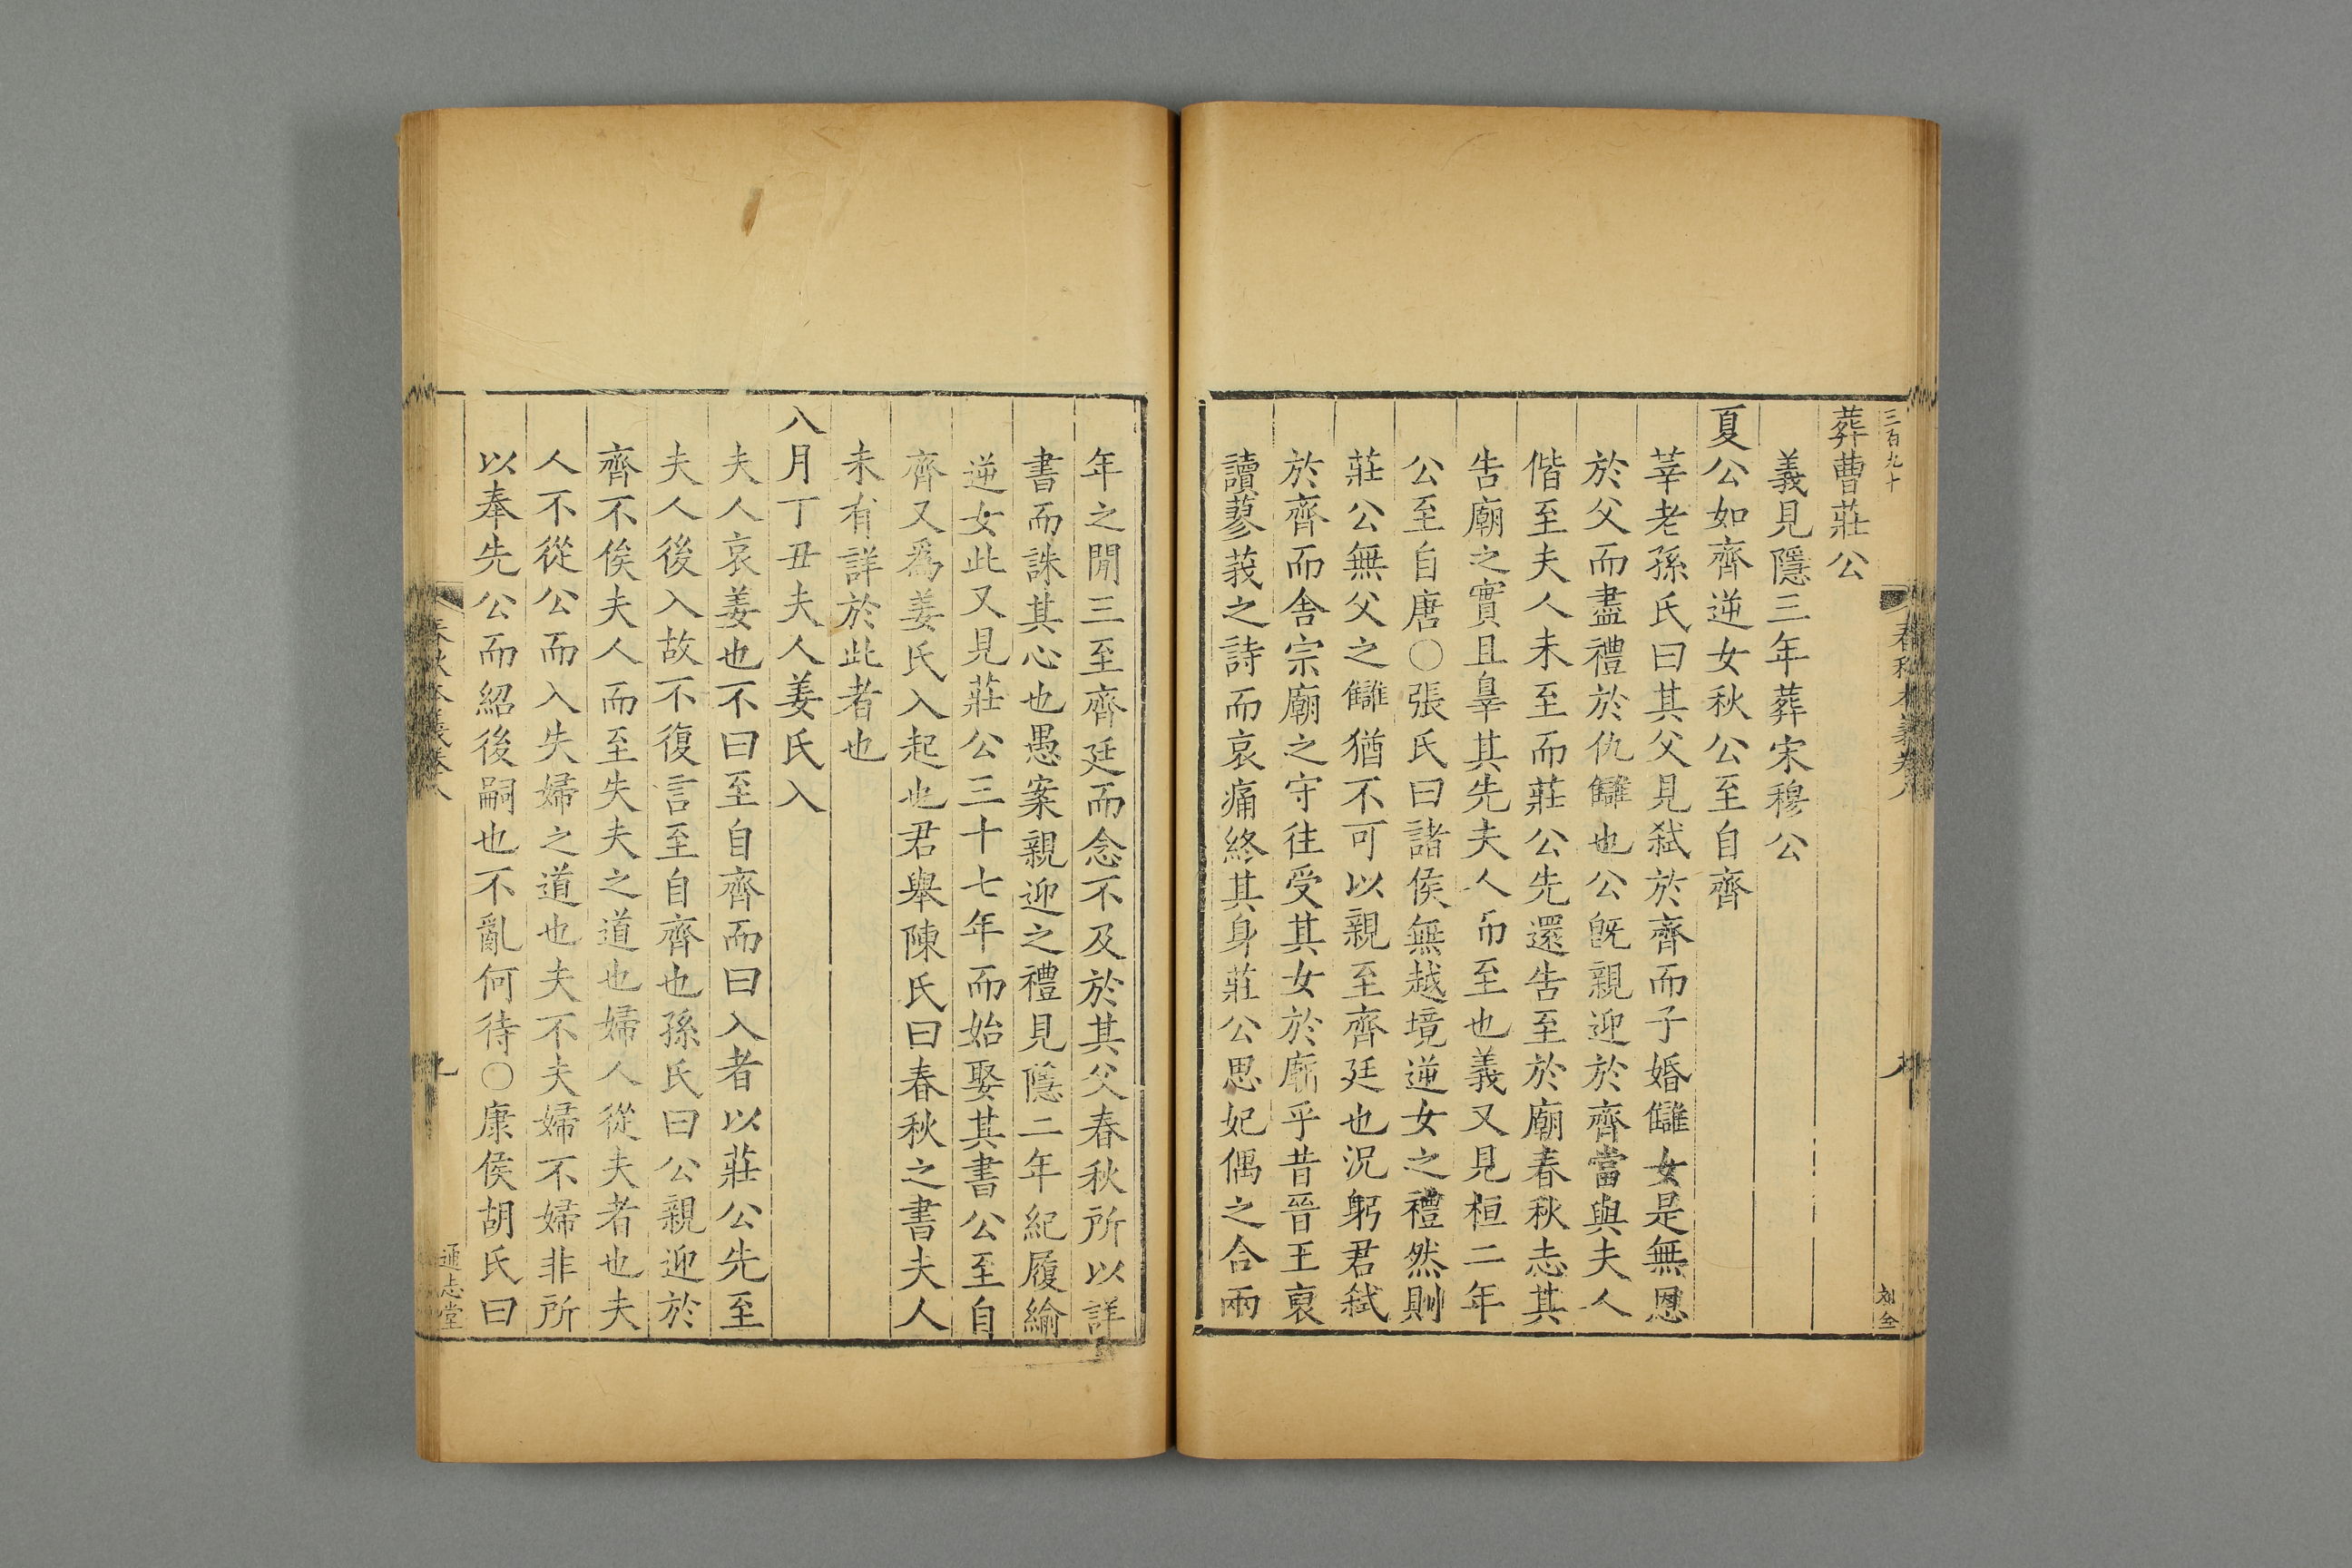 三百九十
葬曹莊公
義見隱三年葬宋穆公
夏公如齊逆女秋公至自齊
莘老孫氏曰其父見弑於齊而子婚讎女是無恩
於父而盡禮於仇讎也公旣親迎於齊當與夫人
偕至夫人未至而莊公先還告至於廟春秋志其
告廟之實且辠其先夫人而至也義又見桓二年
公至自唐○張氏曰諸侯無越境逆女之禮然則
莊公無父之讎猶不可以親至齊廷也況躬君弑
於齊而舍宗廟之守往受其女於廟乎昔晉王裒
讀蓼莪之詩而哀痛終其身莊公思妃偶之合兩
年之閒三至齊廷而念不及於其父春秋所以詳
書而誅其心也愚案親迎之禮見隱二年紀履緰
逆女此又見莊公三十七年而始娶其書公至自
齊又爲姜氏入起也君舉陳氏曰春秋之書夫人
未有詳於此者也
八月丁丑夫人姜氏入
夫人哀姜也不曰至自齊而曰入者以莊公先至
夫人後入故不復言至自齊也孫氏曰公親迎於
齊不俟夫人而至失夫之道也婦人從夫者也夫
人不從公而入失婦之道也夫不夫婦不婦非所
以奉先公而紹後嗣也不亂何待○康侯胡氏曰
通志堂